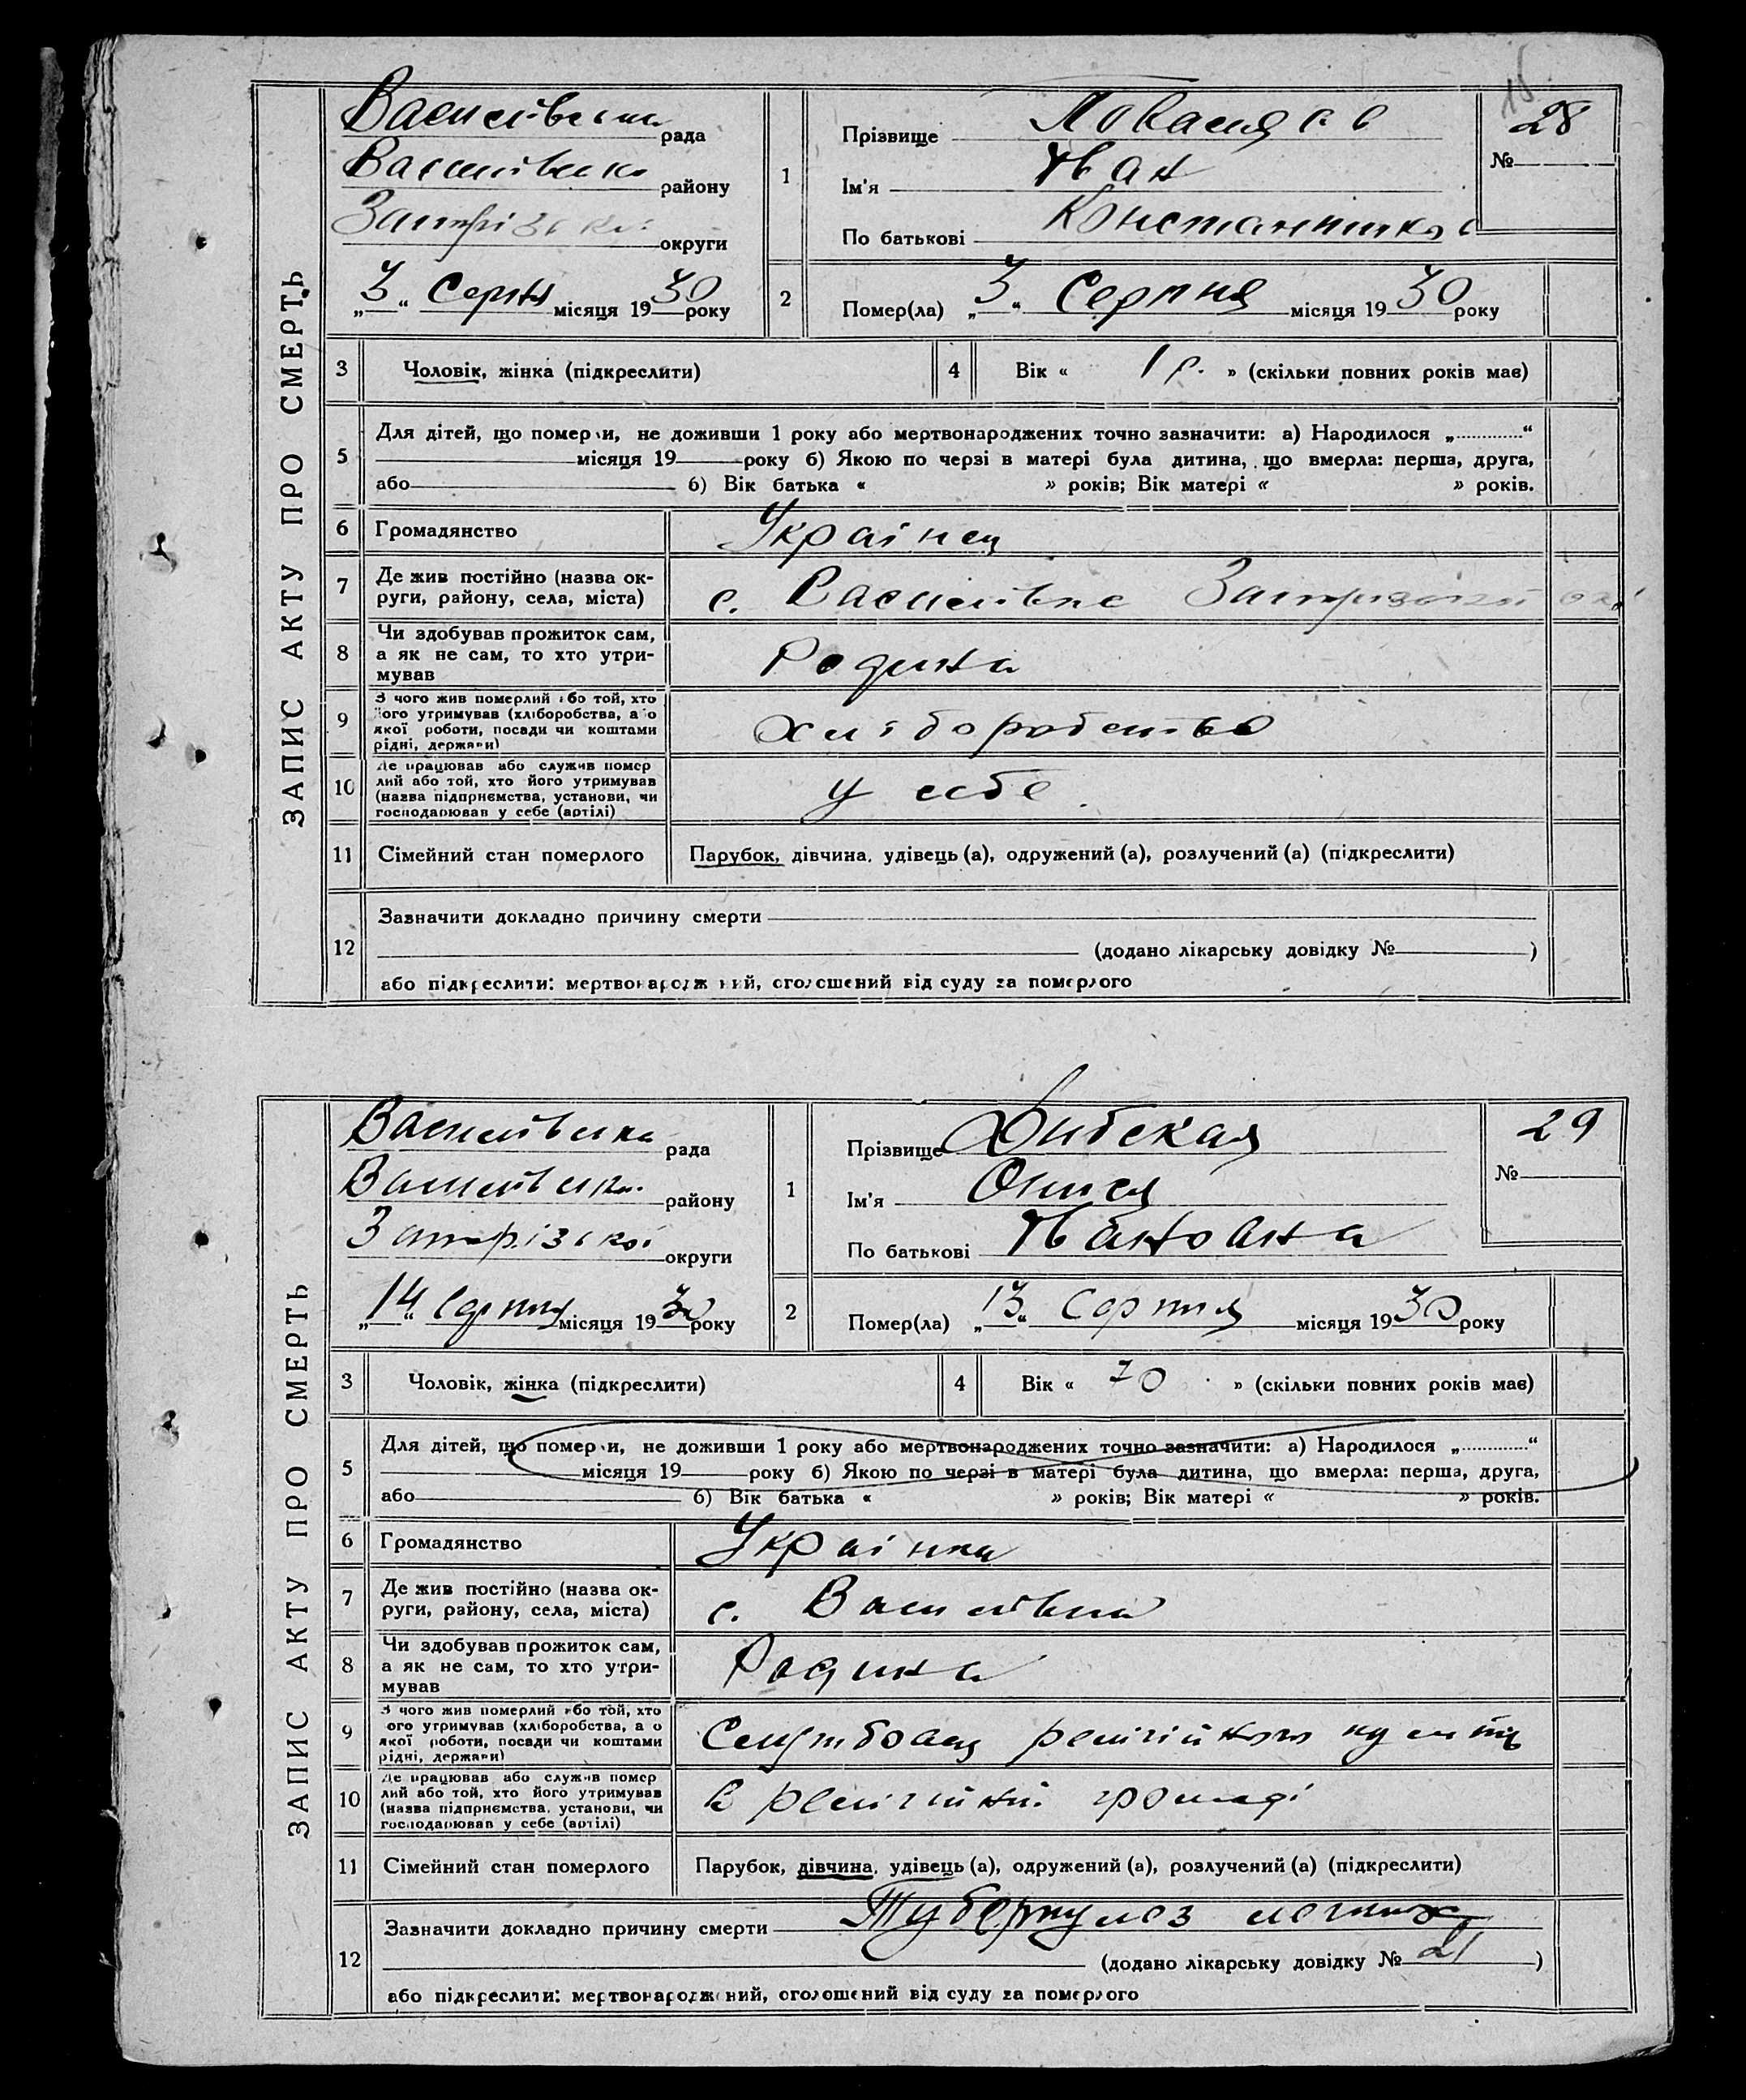 18
ЗАПИС АКТУ ПРО СМЕРТЬ
Василівська рада
Василівсько району
Запорізької округи
„3“ Серпня місяця 1930 року
1
Прізвище
Ім'я Иван
По батькові Константинков
28
№
2
Помер(ла) „3“ Серпня місяця 1930 року
3 Чоловік, жінка (підкреслити)
4 Вік « 1 р. » (скільки повних років має)
5 Для дітей, що померли, не доживши 1 року або мертвонароджених точно зазначити: а) Народилося „ “
місяця 19 року б) Якою по черзі в матері була дитина, що вмерла: перша, друга,
або б) Вік батька « » років; Вік матері « » років.
6 Громадянство Украінец
7 Де жив постійно (назва ок-
руги, району, села, міста) с. Василівке Запорізької ок.
8 Чи здобував прожиток сам,
а як не сам, то хто утри-
мував Родина
9 З чого жив померлий або той, хто
його утримував (хліборобства, або
якої роботи, посади чи коштами
рідні, держави) хліборобство
10 Де працював або служив помер
лий або той, хто його утримував
(назва підприємства, установи, чи
господарював у себе (артілі) у себе
11 Сімейний стан померлого Парубок, дівчина, удівець (а), одружений (а), розлучений (а) (підкреслити)
12 Зазначити докладно причину смерти
(додано лікарську довідку № )
або підкреслити: мертвонароджений, оголошений від суду за померлого
ЗАПИС АКТУ ПРО СМЕРТЬ
Василівська рада
Василівсько району
Запорізької округи
„14“ Серпня місяця 1930 року
1
Прізвище
Ім'я
По батькові Ивановна
29
№
2
Помер(ла) „13“ Серпня місяця 1930 року
3 Чоловік, жінка (підкреслити)
4 Вік « 70 » (скільки повних років має)
5 Для дітей, що померли, не доживши 1 року або мертвонароджених точно зазначити: а) Народилося „ “
місяця 19 року б) Якою по черзі в матері була дитина, що вмерла: перша, друга,
або б) Вік батька « » років; Вік матері « » років.
6 Громадянство Украінка
7 Де жив постійно (назва ок-
руги, району, села, міста) с. Василівка
8 Чи здобував прожиток сам,
а як не сам, то хто утри-
мував Родина
9 З чого жив померлий або той, хто
його утримував (хліборобства, або
якої роботи, посади чи коштами
рідні, держави) Службовец релігійного культу
10 Де працював або служив помер
лий або той, хто його утримував
(назва підприємства, установи, чи
господарював у себе (артілі) в релігійній громаді
11 Сімейний стан померлого Парубок, дівчина, удівець (а), одружений (а), розлучений (а) (підкреслити)
12 Зазначити докладно причину смерти Туберкулез легких
(додано лікарську довідку № 21 )
або підкреслити: мертвонароджений, оголошений від суду за померлого